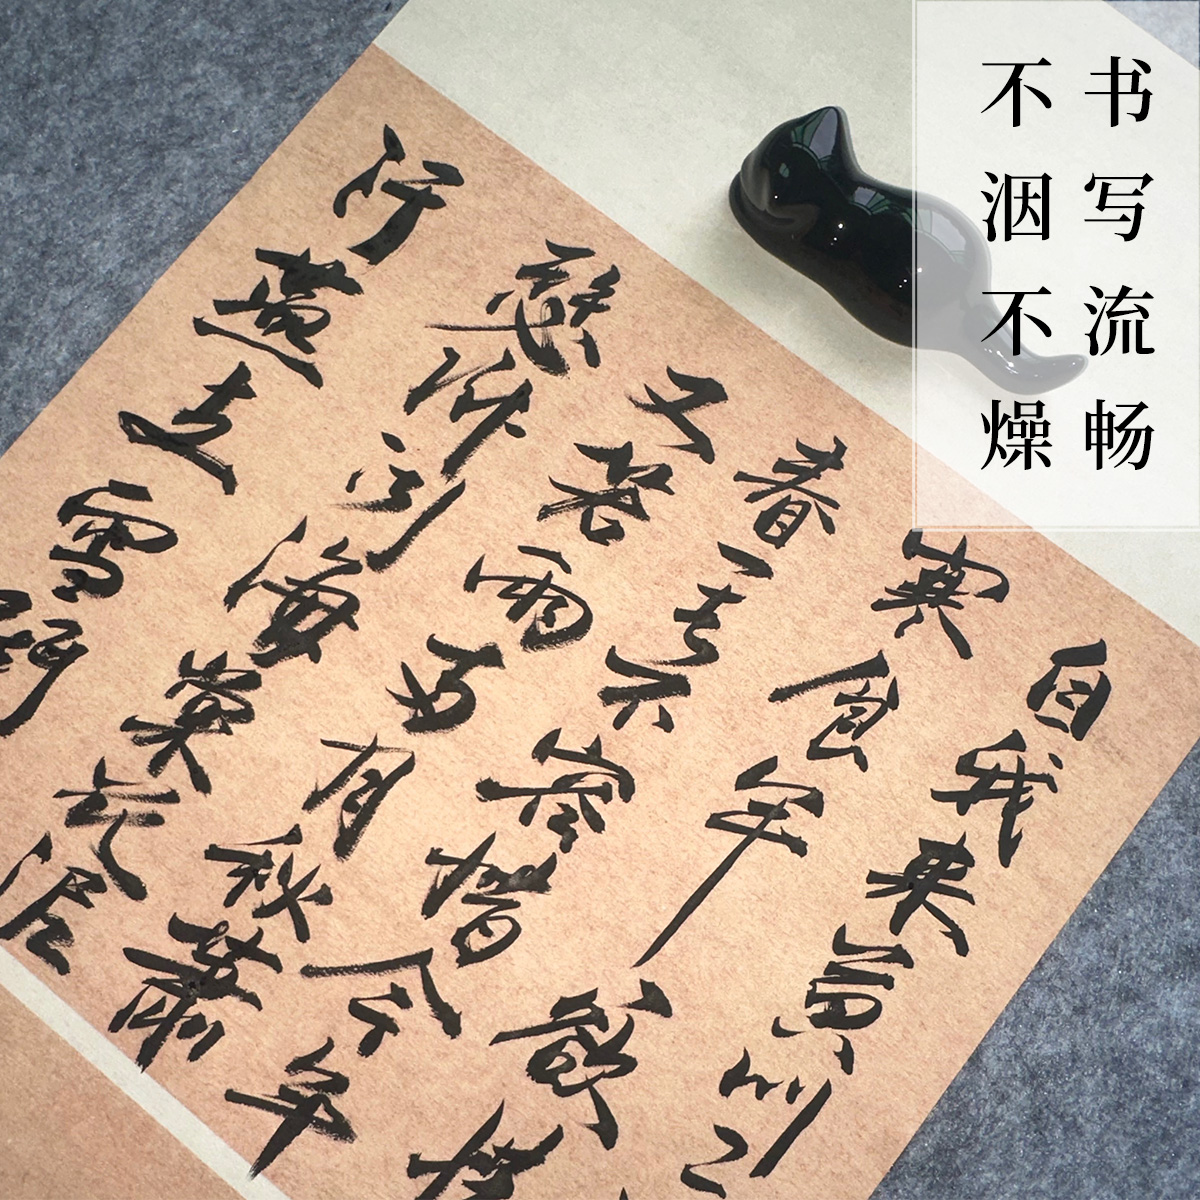 书写流畅
不洇不燥
自我来黄州已
寒食年〻欲惜
春〻去不容惜今年
又苦雨两月秋萧
瑟卧闻海棠花泥
污燕支雪